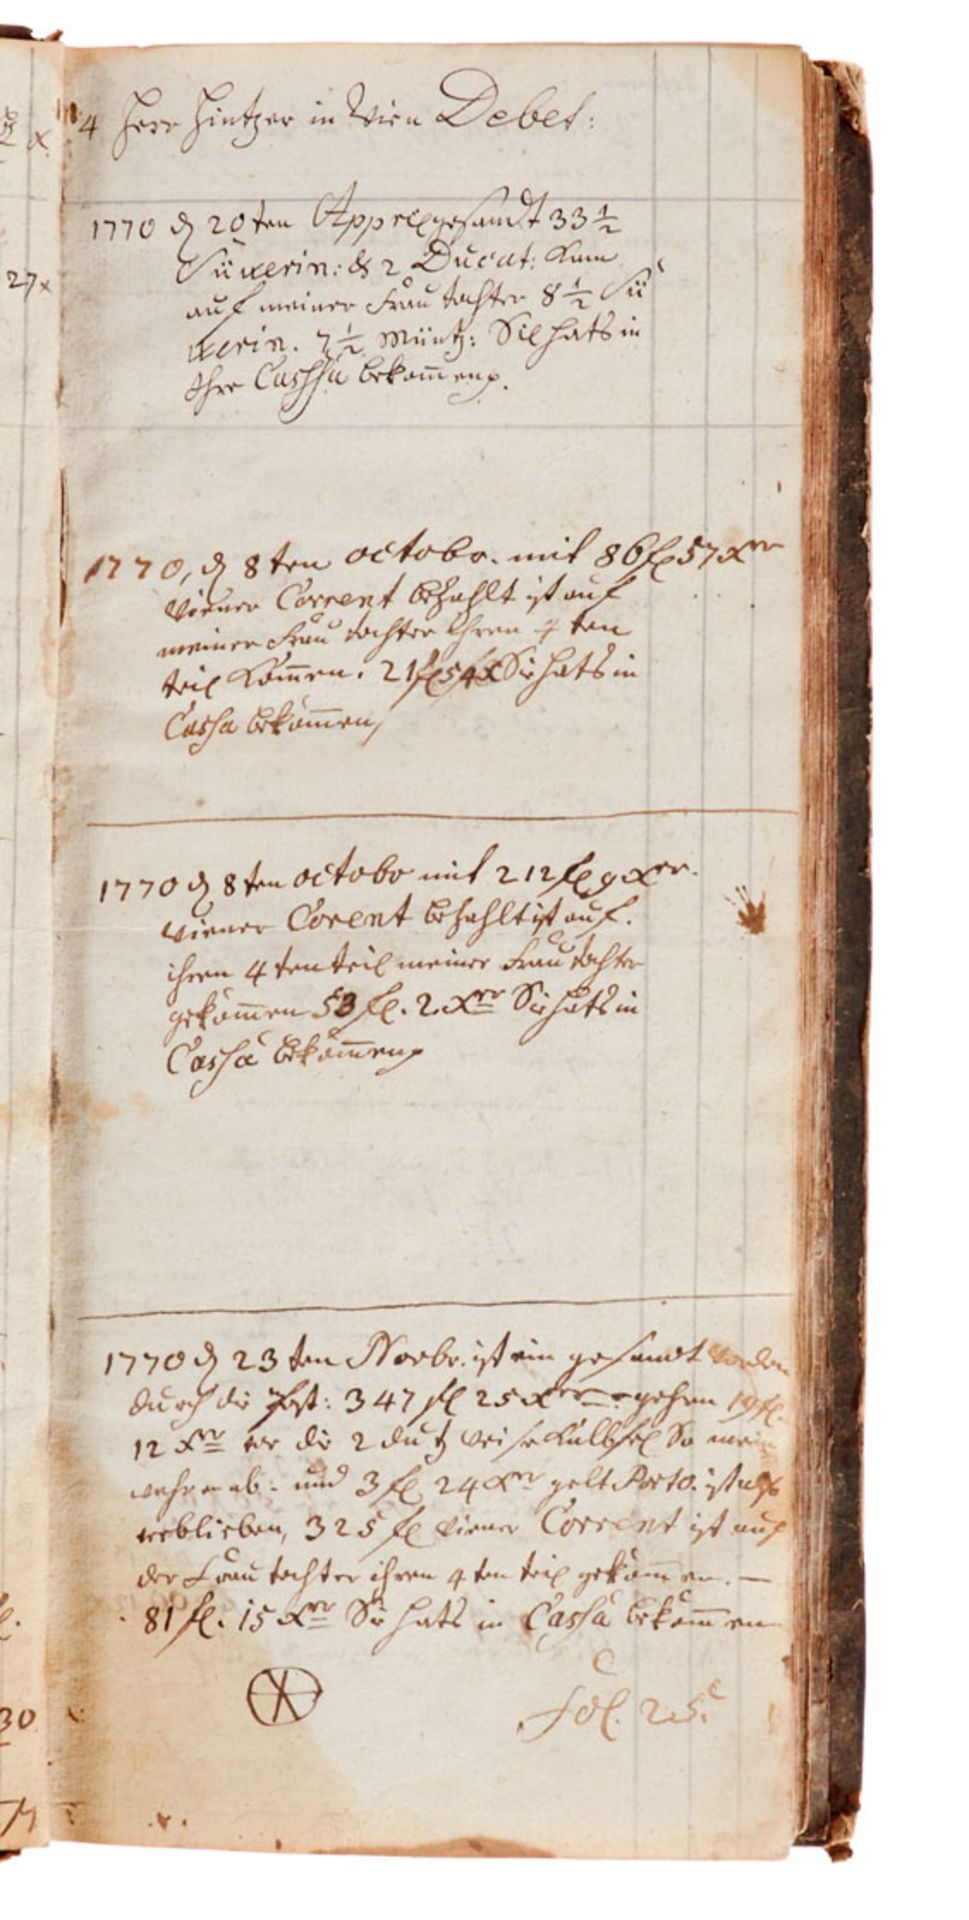 4 Herr Hintzer in Wien Debet:
1770 d 20ten Apprill gesandt 33 1/2
Süverin: & 2 Ducat: kam
auf meiner Frau tochter 8 1/2 Sü
verin. 7 1/2 Müntz: Sie hats in
Ihre Cassha bekom̅en
1770, d 8ten octobr. mit 86 fl 57 Xer
Viener Corrent bezahlt ist auf
meiner Frau tochter Ihren 4 ten
teil kom̅en. 21 fl 54 X Sie hats in
Cassa bekom̅en
1770 d 8ten octobr mit 212 fl 9 Xer.
Viener Corent bezahlt ist auf.
ihren 4 ten teil meiner Frau tochter
gekom̅en 53 fl. 2. Xer Sie hats in
Cassa bekom̅en
1770 d 23ten Novbr. ist ein gesandt Vorden
durch die Post: 347 fl 25 Xer gehen 19 fl.
12 Xer vor die 2 dutz
ab: und 3 fl 24 Xer gelt Porto. ist
verblieben, 325 fl Viener Corrent ist auf
der Frau tochter ihren 4 ten teil gekom̅en. —
81 fl. 15 Xer Sie hats in Cassa bekom̅en
fol. 25.
27 x
30